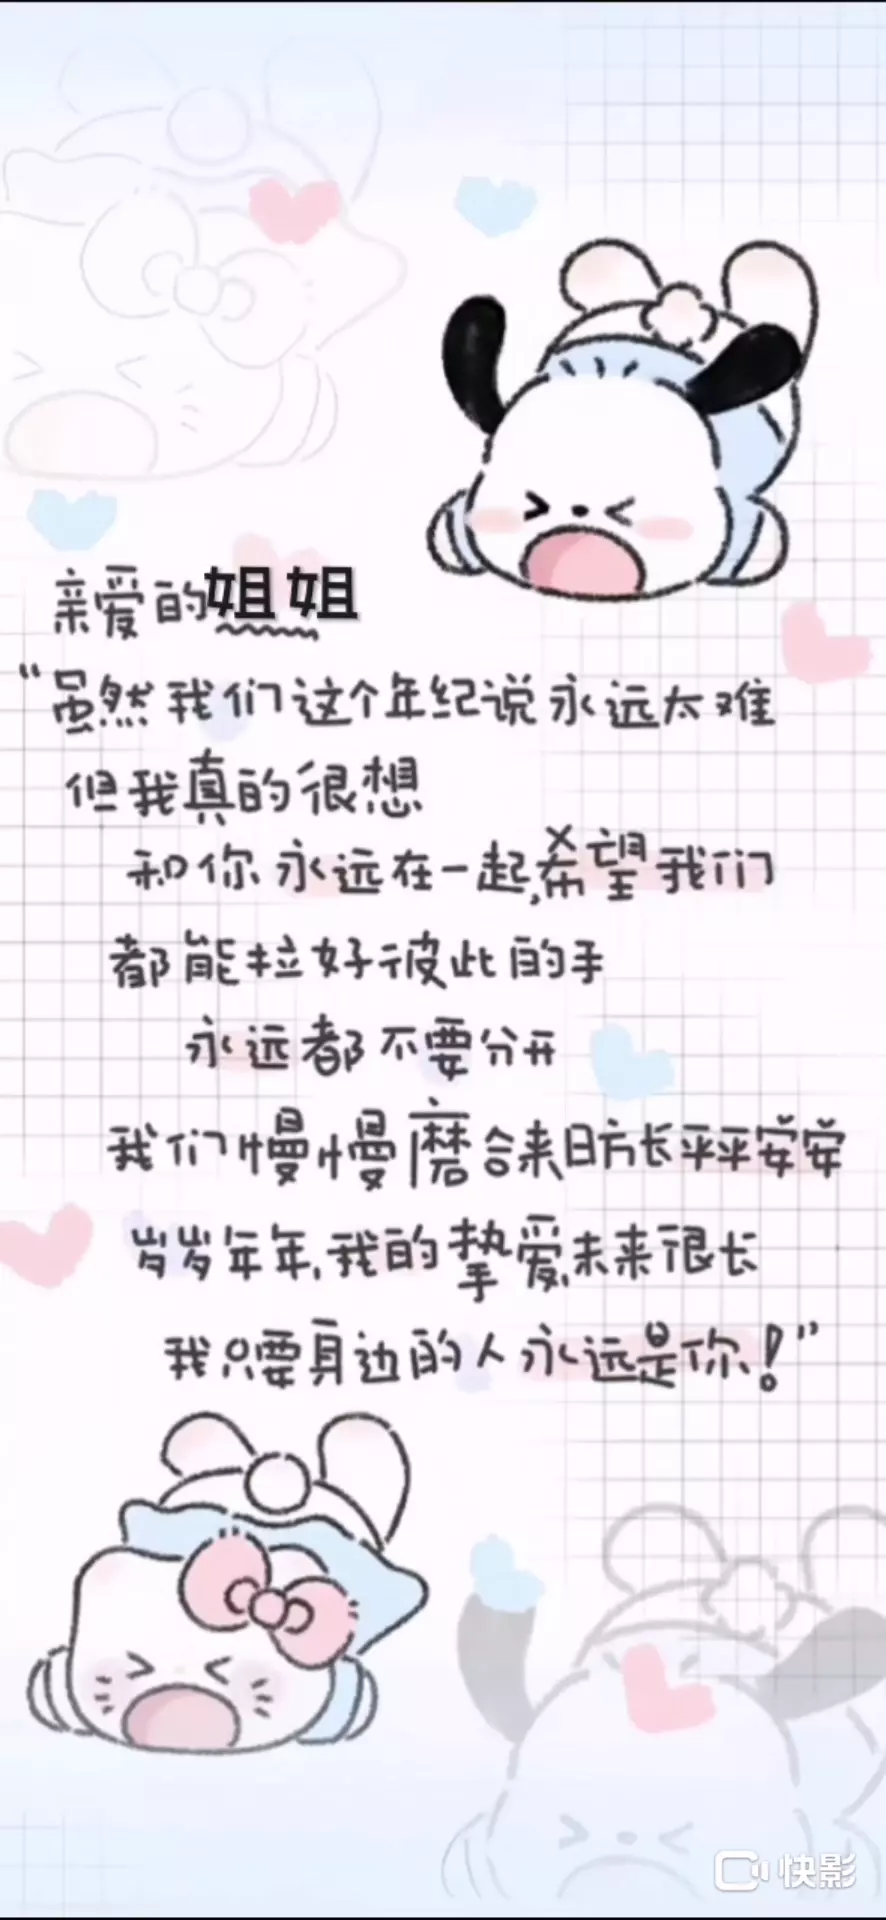 亲爱的姐姐
“虽然我们这个年纪说永远太难
但我真的很想
和你永远在一起,希望我们
都能拉好彼此的手
永远都不要分开
我们慢慢磨合来日方长平平安安
岁岁年年,我的挚爱,未来很长
我只要身边的人永远是你!”
快影